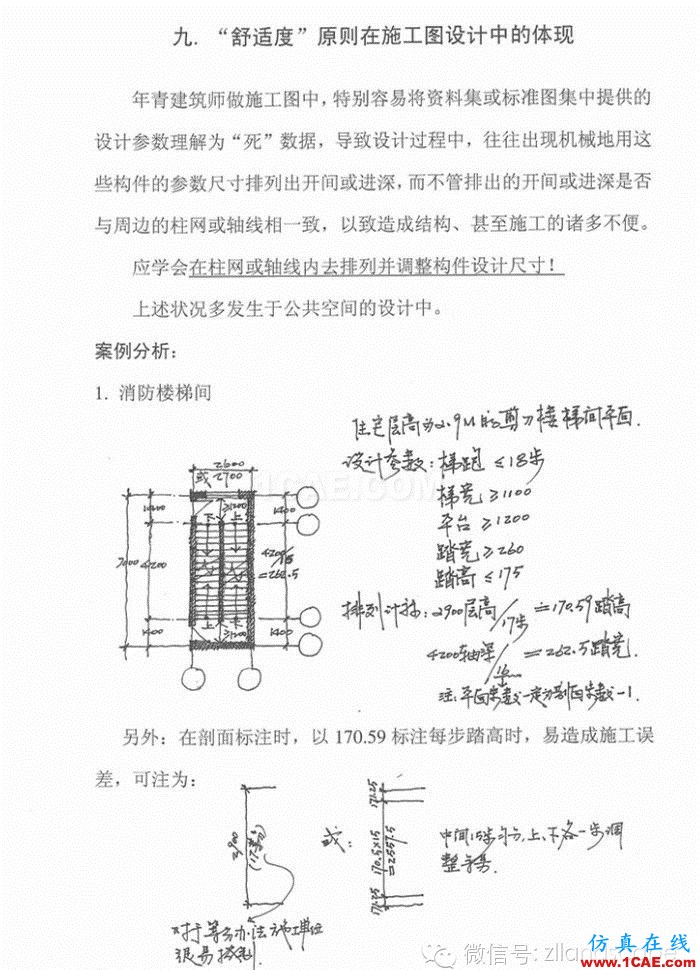 九. “舒适度”原则在施工图设计中的体现
年青建筑师做施工图中，特别容易将资料集或标准图集中提供的
设计参数理解为“死”数据，导致设计过程中，往往出现机械地用这
些构件的参数尺寸排列出开间或进深，而不管排出的开间或进深是否
与周边的柱网或轴线相一致，以致造成结构、甚至施工的诸多不便。
应学会在柱网或轴线内去排列并调整构件设计尺寸！
上述状况多发生于公共空间的设计中。
案例分析：
1. 消防楼梯间
住宅层高为2.9M的剪刀楼梯间平面.
设计参数：梯跑 ≤18步
梯宽 ≥1100
平台 ≥1200
踏宽 ≥260
踏高 ≤175
排列计算：2900层高/17步 ≒170.59踏高
4200轴深/16 =262.5踏宽.
注：平面步数一定为剖面步数-1.
2600
或2700
1400
1400
7000
4200
4200/15
=262.5
≥1200
上
上
上
上
≥1200
1400
1400
1CAE.COM
另外：在剖面标注时，以 170.59 标注每步踏高时，易造成施工误
差，可注为：
2900
(17等分)
或：
171.25
170.5×15
=2557.5
171.25
中间15步均分，上、下各一步调
整尾数.
对于等分办法施工单位
很易搞乱
微信号: zllands
仿真在线
www.1CAE.com